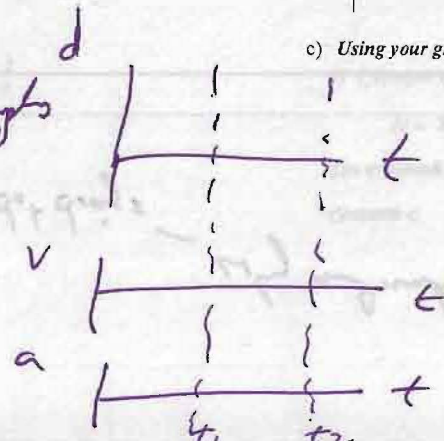 d
c) Using your g
t
v
t
a
t
t₁
t₂